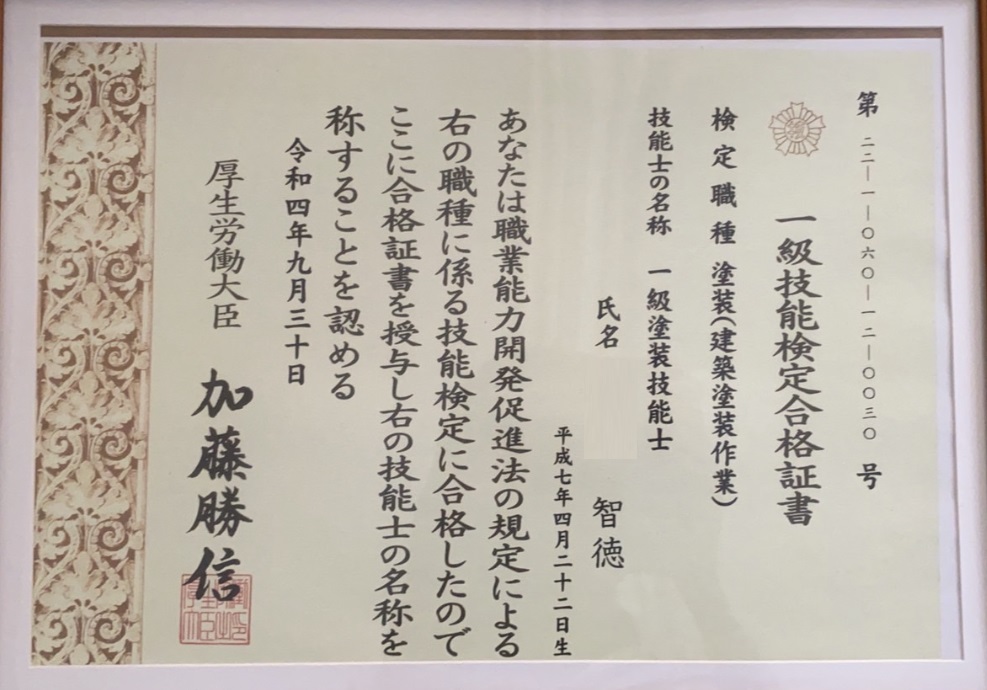 第 二二―一―〇六〇―一二―〇〇三〇 号
一級技能検定合格証書
検定職種 塗装(建築塗装作業)
技能士の名称 一級塗装技能士
氏名 智徳
平成七年四月二十二日生
あなたは職業能力開発促進法の規定による
右の職種に係る技能検定に合格したので
ここに合格証書を授与し右の技能士の名称を
称することを認める
令和四年九月三十日
厚生労働大臣 加藤勝信